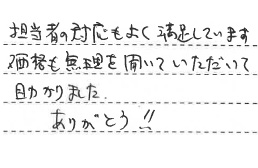 担当者の対応もよく満足しています
価格も無理を聞いていただいて
助かりました.
ありがとう!!